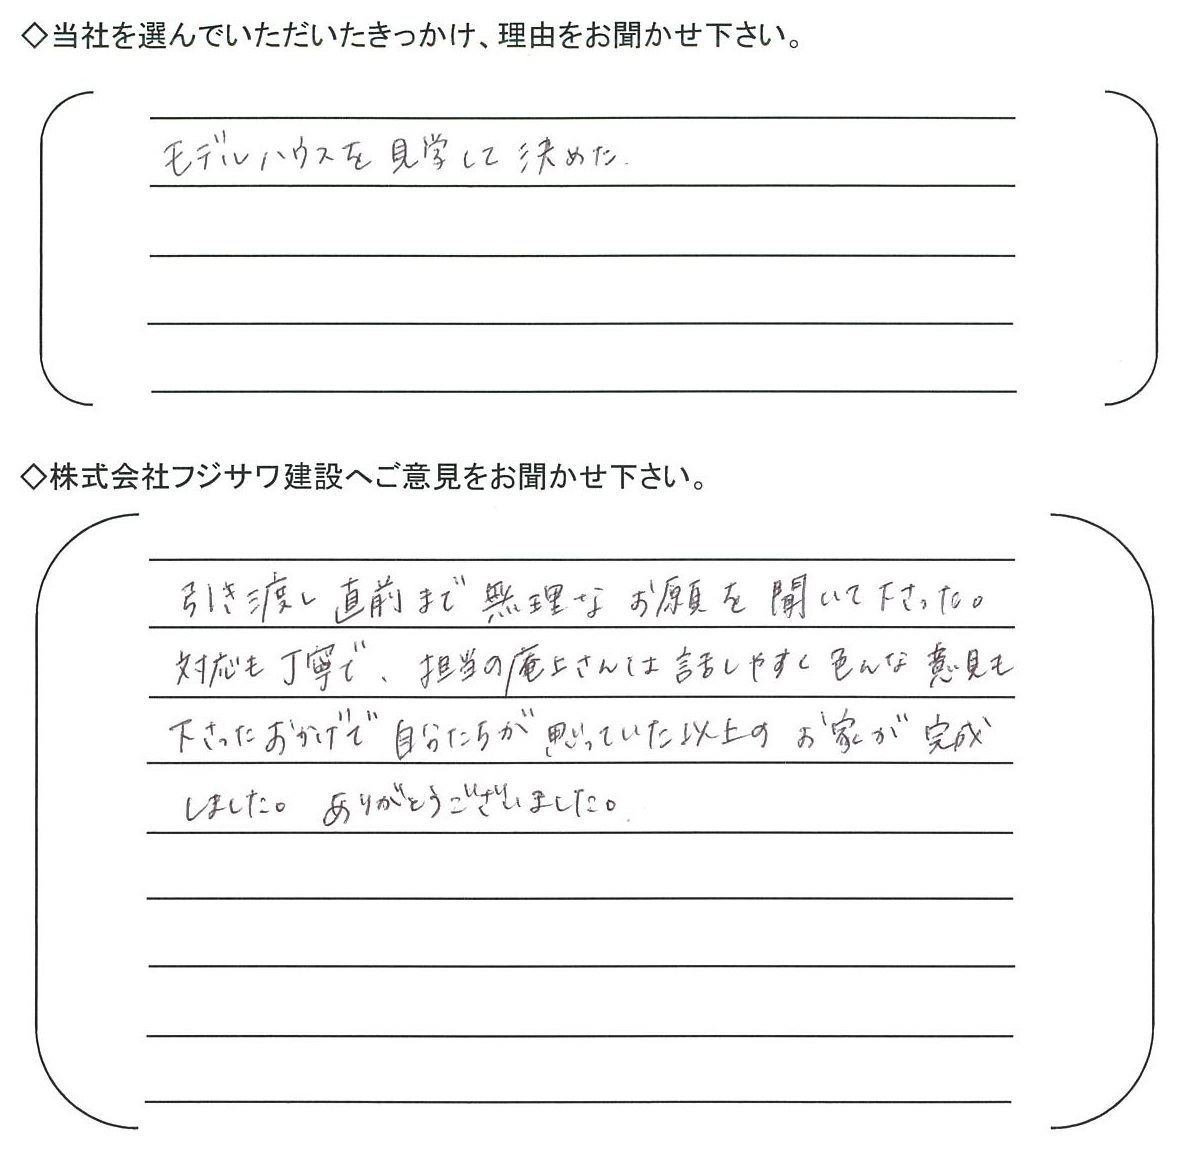 ◇当社を選んでいただいたきっかけ、理由をお聞かせ下さい。
モデルハウスを見学して決めた.
◇株式会社フジサワ建設へご意見をお聞かせ下さい。
引き渡し直前まで無理なお願を聞いて下さった。
対応も丁寧で、担当の庵上さんは話しやすく色んな意見も
下さったおかげで自分たちが思っていた以上のお家が完成
しました。ありがとうございました。